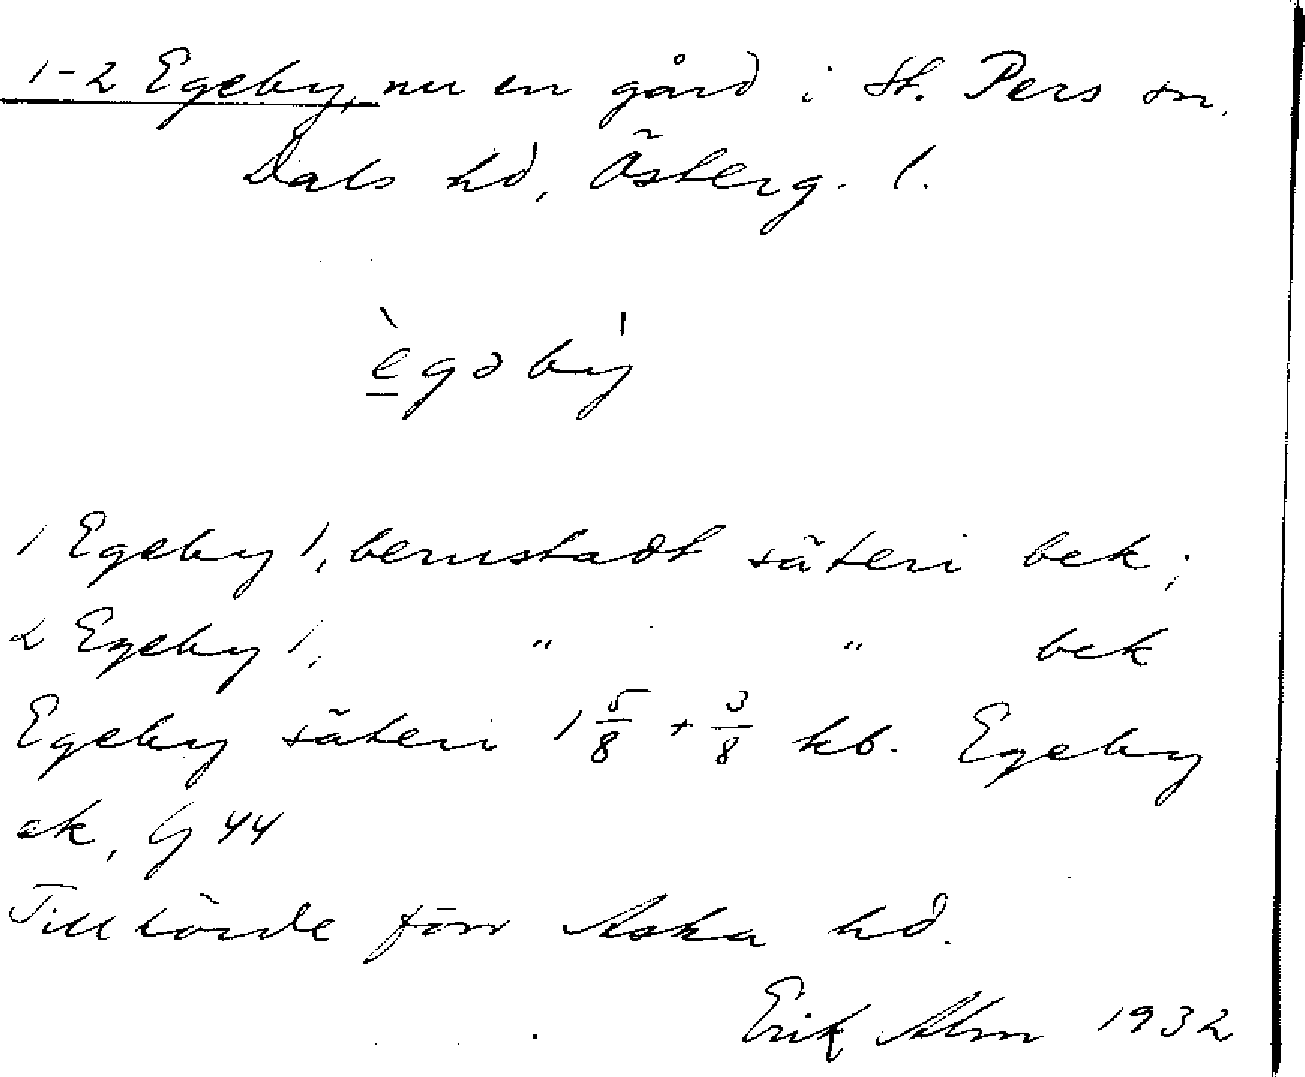 1-2 Egeby, nu en gård i St. Pers sn,
Dals hd, Österg. l.
ègəbý
1 Egeby 1, berustadt säteri bek;
2 Egeby 1, " " bek
Egeby säteri 1 5/8 + 3/8 kb. Egeby
ek, G 44
Tillhörde förr Aska hd.
Erik Alm 1932